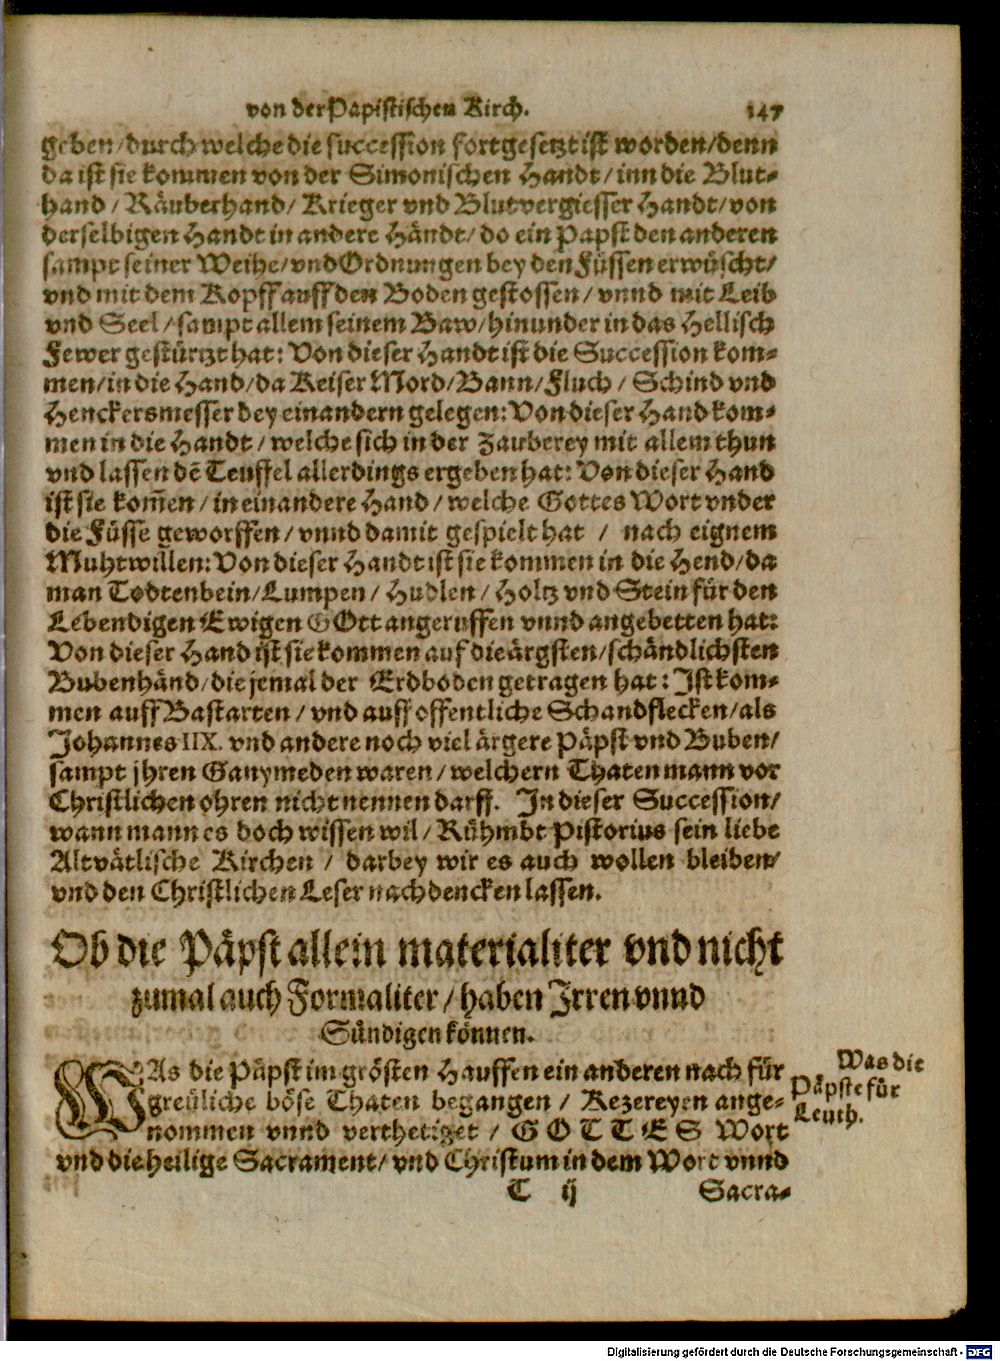 von der Papistischen Kirch. 147
geben/durch welche die succession fortgesetzt ist worden/denn
da ist sie kommen von der Simonischen Handt/inn die Blut-
hand/Räuberhand/Krieger vnd Blutvergiesser Handt/von
derselbigen Handt in andere Händt/do ein Papst den anderen
sampt seiner Weihe/vnd Ordnungen bey den Füssen erwüscht/
vnd mit dem Kopff auff den Boden gestossen/vnnd mit Leib
vnd Seel/sampt allem seinem Baw/hinunder in das Hellisch
Fewer gestürtzt hat: Von dieser Handt ist die Succession kom-
men/in die Hand/da Keiser Mord/Bann/Fluch/Schind vnd
Henckersmesser bey einandern gelegen: Von dieser Hand kom-
men in die Handt/welche sich in der Zauberey mit allem thun
vnd lassen dē Teuffel allerdings ergeben hat: Von dieser Hand
ist sie kom̃en/in ein andere Hand/welche Gottes Wort vnder
die Füsse geworffen/vnnd damit gespielt hat / nach eignem
Muhtwillen: Von dieser Handt ist sie kommen in die Hend/da
man Todtenbein/Lumpen/Hudlen/Holtz vnd Stein für den
Lebendigen Ewigen GOtt angeruffen vnnd angebetten hat:
Von dieser Hand ist sie kommen auf die ärgsten/schändlichsten
Bubenhänd/die jemal der Erdboden getragen hat: Ist kom-
men auff Bastarten/vnd auff offentliche Schandflecken/als
Johannes IIX. vnd andere noch viel ärgere Päpst vnd Buben/
sampt jhren Ganymeden waren/welchern Thaten mann vor
Christlichen ohren nicht nennen darff. In dieser Succession/
wann mann es doch wissen wil/Rühmbt Pistorius sein liebe
Altvätlische Kirchen / darbey wir es auch wollen bleiben/
vnd den Christlichen Leser nachdencken lassen.
Ob die Päpst allein materialiter vnd nicht
zumal auch Formaliter/haben Irren vnnd
Sündigen können.
WAs die Päpst im grösten Hauffen ein anderen nach für
greüliche böse Thaten begangen / Kezereyen ange-
nommen vnnd verthetiget / GOTTES Wort
vnd die heilige Sacrament/vnd Christum in dem Wort vnnd
Was die
Päpste für
Leuth.
T ij Sacra-
Digitalisierung gefördert durch die Deutsche Forschungsgemeinschaft - DFG